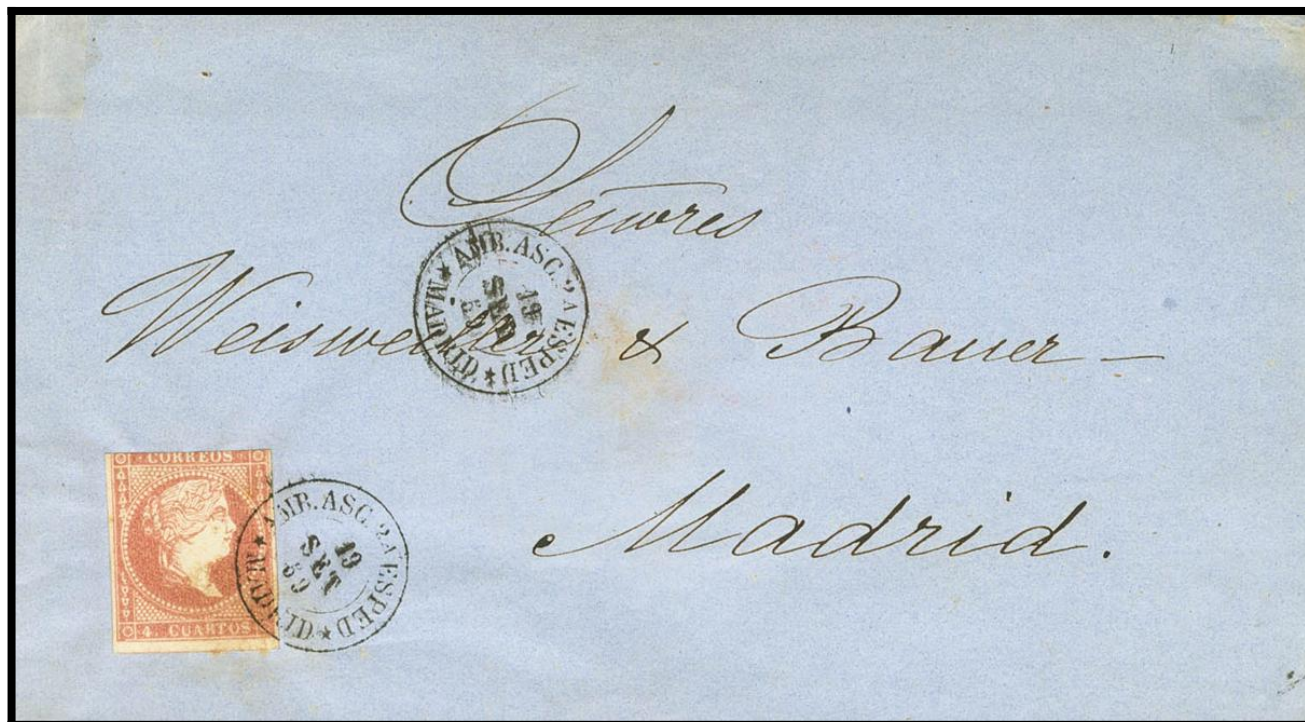 Señores
Weisweiller & Bauer –
Madrid.
★ AMB. ASC. 2A ESPED ★ MADRID
19
SET
CORREOS
4. CUARTOS
★ AMB. ASC. 2A ESPED ★ MADRID
19
SET
59